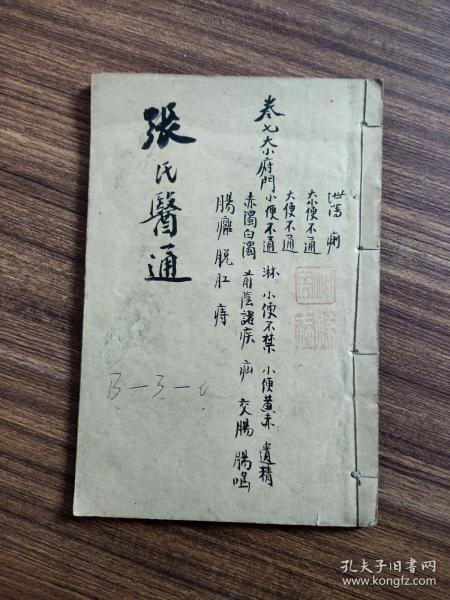 張氏醫通
卷七大小府門
泄瀉 痢
大小便不通
大便不通
小便不通 淋 小便不禁 小便黃赤 遺精
赤濁白濁 前陰諸疾 疝 交腸 腸鳴
腸癰 脫肛 痔
B-3-
孔夫子旧书网
www.kongfz.com